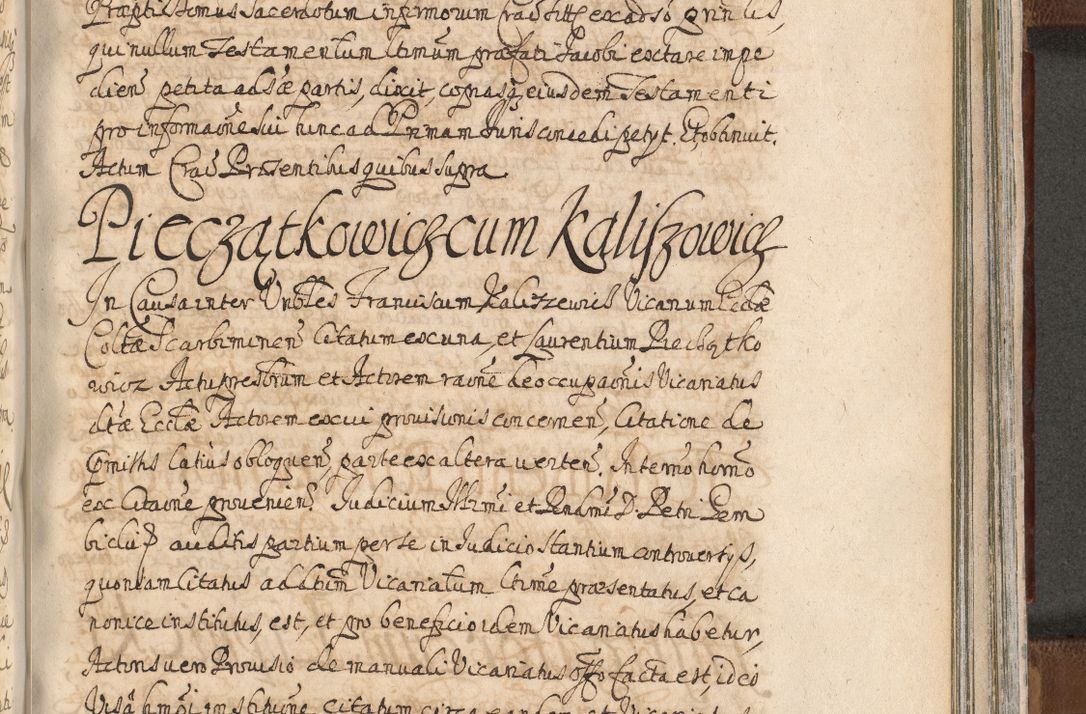 Præptis Domus Sacerdotum infirmorum Crac̃ fitt̃ ex adso gn̄līs,
qui nullum Testamentum ltimum præfati Jacobi extare impe
dien̄ petita adsæ partis, dixit, copiasq̨ eiusdem Testamenti
pro informaõne sui hinc ad Primam Juris concedi petyt. Et obtinuit.
Actum Crac̃ Præsentibus quibus supra
Pieczątkowicz cum Kaliszowicz
In Causa inter Vnbles Franciscum Kaliszewicz Vicarium Ecclæ
Coltæ Scarbimirien̄ Citatum ex una, et Laurentium Piechątko
wicz Actu presbrum et Actorem raõne de occupaõnis Vicariatus
dtæ Ecclæ Actorem ex cui provisionis concernen̄, Citatione de
pmissis latius obloquen̄, parte ex altera verten̄, In termo horno
ex Citaõne provenien̄ Judicium Illrmi et Rndmi D. Petri Gem
bicki P auditis partium per se in Judicio stantium controversys,
quoniam Citatus ad dtum Vicariatum ltime præsentatus, et ca
nonice institutus, est, et pro beneficio idem Vicariatus habetur,
Actoris vero Provisio de manuali Vicariatus offo facta est, ideo
Visa hmoi institutione citatum circa eundem et Vicariatus